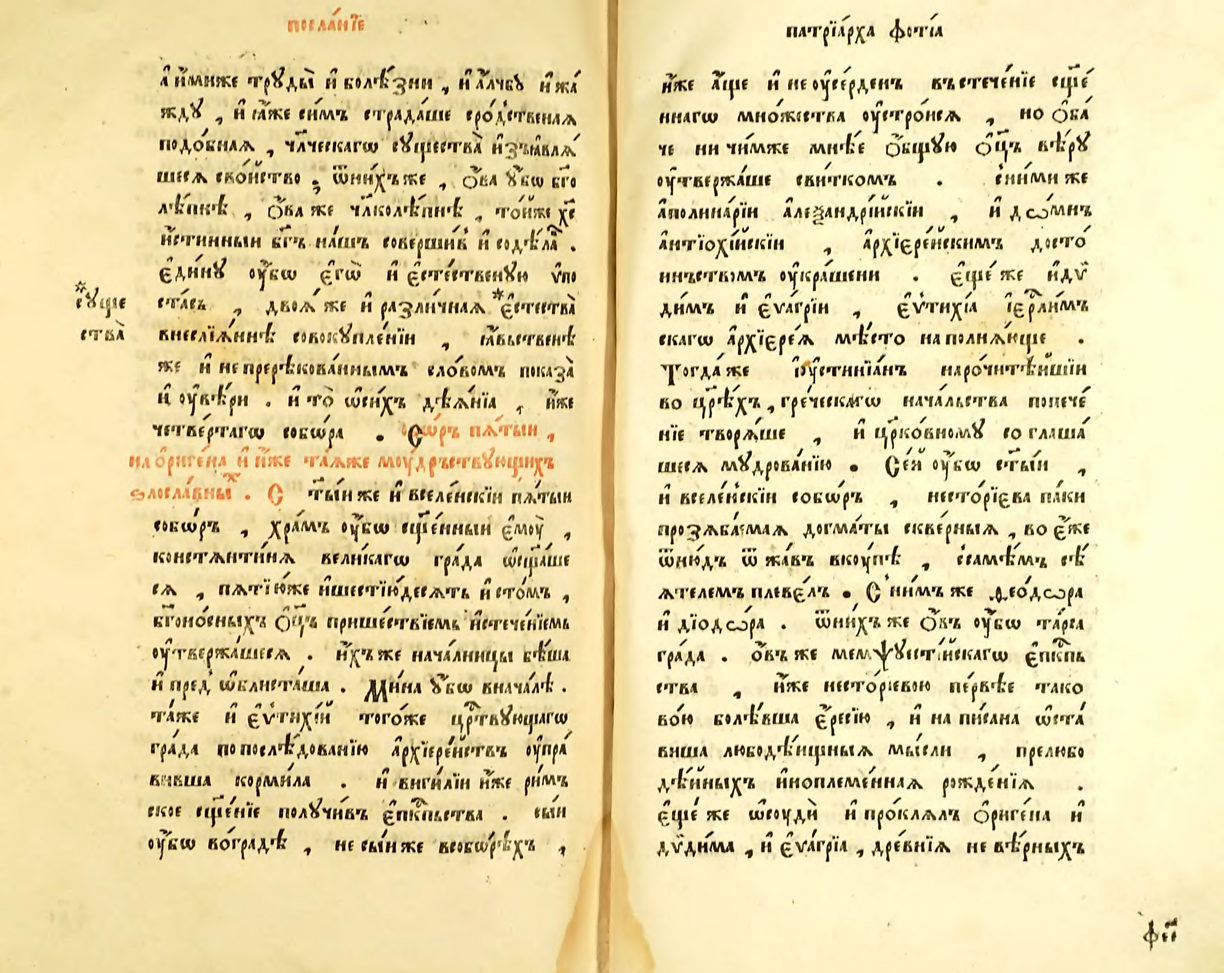 посла́нїе
а҆и҆миже трꙋды̀ и҆ болѣ́зни , и҆ а҆́лчбꙋ и҆жа́
ждꙋ , и҆ ꙗ҆́же си́мъ страда́ше сро́дственаѧ
подо́бнаѧ , чл҃ческагѡ сꙋщества̀ и҆з̾ꙗвлѧ́
шесѧ сво́йство ; ѿни́хъже , ѻ҆́ва ᲂу҆́бѡ бг҃о
лѣ́пнѣ , ѻ҆́ва же чл҃колѣ́пнѣ , то́иже хс҃
и҆́стинныи бг҃ъ на́шъ соверши́в и҆ содѣ́ла .
є҆ди́нꙋ ᲂу҆́бѡ є҆гѡ̀ и҆ є҆сте́ственꙋю ѵ҆по
ста́сь , двоѧ́ же и҆ разли́чнаѧ *є҆стества̀
*сꙋще
ства̀
внеслїѧ́ннѣ совокꙋпле́нїи , ꙗ҆́вьственѣ
же и҆ непререкова́ннымъ сло́вомъ показа̀
и҆ ᲂу҆вѣ́ри . и҆ то̀ ѡ҆си́хъ дѣѧ́нїа , и҆́же
четве́ртагѡ собо́ра . Собѡ́ръ пѧ́тыи ,
на ѻ҆риге́на и҆ и҆́же та́ѧже моу́дръствꙋющихъ
ѕлосла́вныⷯ . Ст҃ы́иже и҆ вселе́нскїи пѧ́тыи
собѡ́ръ , хра́мъ ᲂу҆́бѡ сщ҃е́нныи є҆моу̀ ,
констѧнти́нѧ вели́кагѡ гра́да ѡ҆сщ҃а́ше
сѧ , пѧтїю́же и҆шестїю́десѧть и҆ сто́мъ ,
бг҃оно́сныхъ ѻ҆ц҃ъ прише́ствїемь и҆стече́нїемь
ᲂу҆твержа́шеесѧ . и҆́хъже нача́лницы бѣ́ша
и҆ пред̾ ѡ҆блиста́ша . Ми́на ᲂу҆́бѡ внача́лѣ .
та́же и҆ є҆ѵти́хїй того́же црⷭ҇твꙋющагѡ
гра́да попослѣ́дованїю а҆рхїере́йствъ ᲂу҆пра́
вивша корми́ла . и҆ виги́лїи и҆́же ри́мъ
ское сщ҃е́нїе полꙋчи́въ є҆пⷭ҇кпьства . сы́и
ᲂу҆́бѡ во́градѣ , не сы́иже всобѡ́рѣхъ ,
патрїа́рха фо́тїа
и҆́же а҆́ще и҆ не ᲂу҆се́рденъ въ стече́нїе сщ҃е́
ннагѡ мно́жества ᲂу҆стро́исѧ , но ѻ҆ба́
че ни чи́мже мнѣ́е ѻ҆́бщꙋю ѻ҆ц҃ъ вѣ́рꙋ
ᲂу҆твержа́ше сви́ткомъ . сни́ми же
а҆полина́рїи а҆леѯандрі́йскїи , и҆ до́мнъ
а҆нтїохі́йскїи , а҆рхїере́йскимъ досто́
инъствомъ ᲂу҆кра́шени . є҆ще́ же и҆ дѵ́
димъ и҆ є҆ѵа́грїи , є҆ѵти́хїа і҆ерⷭ҇ли́мъ
скагѡ а҆рхїере́ѧ мѣ́сто наполнѧ́юще .
Тогда́же і҆ᲂустинїа́нъ нарочитѣ́йшїи
во цр҃ѣ́хъ , гре́ческагѡ нача́льства попече́
нїе творѧ́ше , и҆ цр҃ко́вномꙋ соглаша́
шесѧ мꙋдрова́нїю . Се́й ᲂу҆́бѡ ст҃ы́и ,
и҆ вселе́нскїи собѡ́ръ , несто́рїева па́ки
прозѧба́емаѧ дога́ты скве́рныѧ , во є҆́же
ѿню́дъ ѿжа́въ вкоу́пѣ , ссамѣ́мъ сѣ́
ѧтелемъ пле́велъ . С ни́мъ же ѳео́дѡра
и҆ дїодѡ́ра . ѿни́хъ же ѻ҆́въ ᲂу҆́бѡ та́рса
гра́да . ѻ҆́въ же мемѱꙋесті́йскагѡ є҆пⷭ҇кпь
ства , и҆́же несто́рїевою пе́рвѣе тако
во́ю болѣ́вша є҆́ресїю , и҆ напи́сана ѡ҆ста́
виша любодѣ́ищныѧ мы́сли , прелюбо
дѣ́йныхъ и҆ноплеме́ннаѧ рожде́нїѧ .
є҆ще́ же ѡ҆соудѝ и҆ про́клѧлъ ѻ҆риге́на и҆
дѵ́дима , и҆ є҆ѵа́грїа , дре́внїѧ невѣ́рныхъ
фи҃і